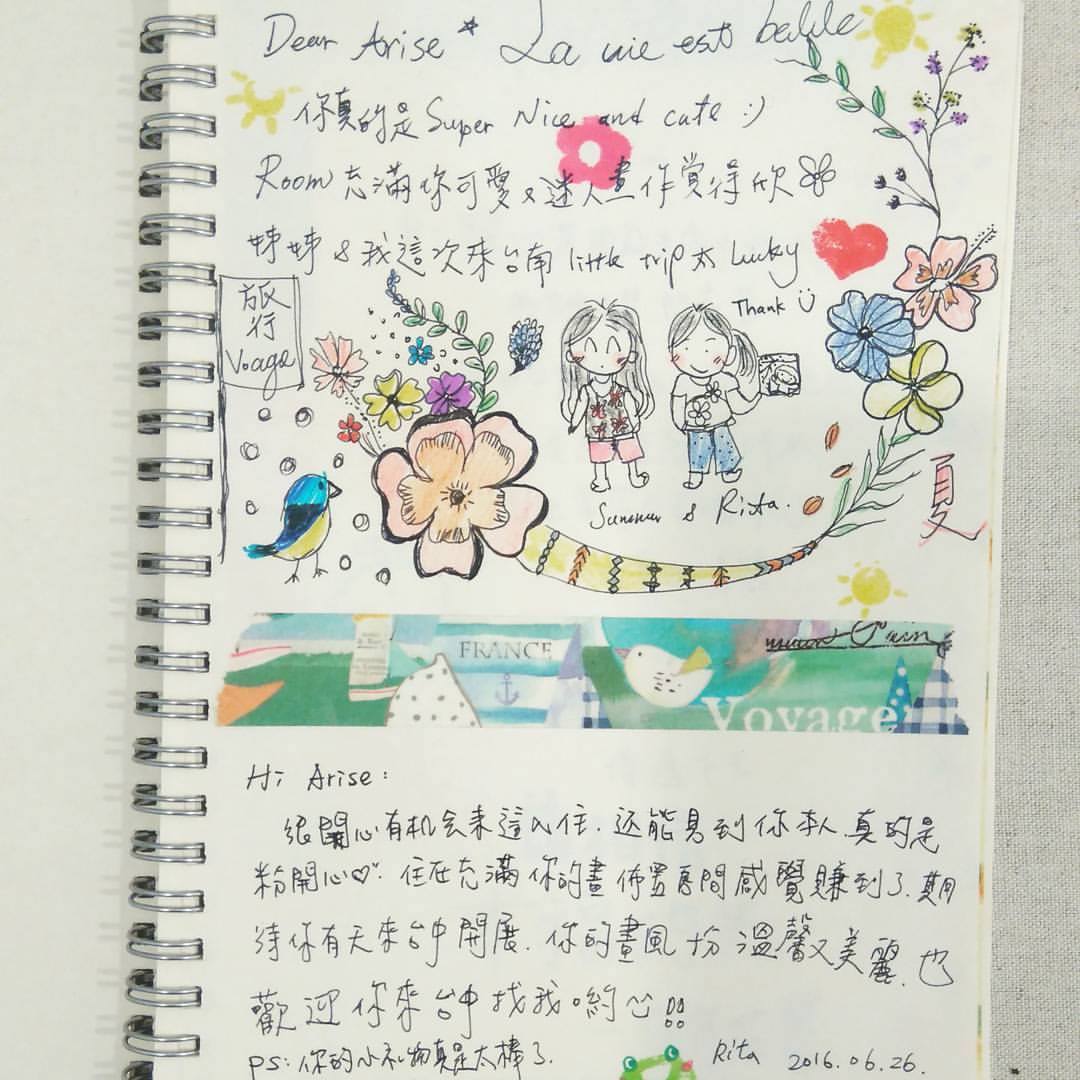 Dear Arise * La vie est belle
你真的是 Super Nice and cute :)
Room 充滿你可愛又迷人畫作覺得欣
姊姊 & 我這次來台南 little trip 太 Lucky
旅行
Voage
Thank
Summer & Rita.
夏
FRANCE
Voyage
Hi Arise:
很開心有机会来這入住. 还能見到你本人 真的是
粉開心♡. 住在充滿你的畫佈置房間感覺賺到了. 期
待你有天來台中開展. 你的畫風十份溫馨又美麗. 也
歡迎你來台中找我喲!!
PS: 你的小礼物真是太棒了.
Rita 2016.06.26.